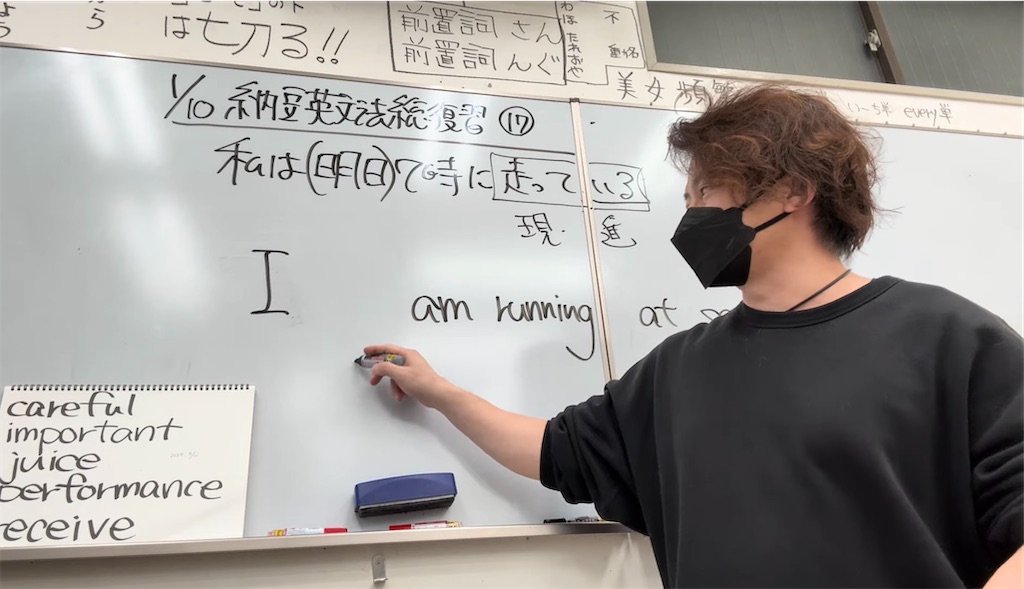 から
は七刀る!!
前置詞さん
前置詞んぐ
不
美女頻
い~ち単 every単
1/10 納豆英文法総復習 ⑰
私は(明日)7時に走っている
現・進
I am running at
careful
important
juice
performance
receive